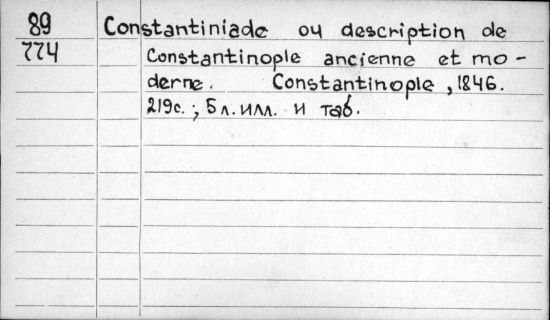 89 Constantiniade ou description de
774 Constantinople ancienne et mo-
derne. Constantinople, 1846.
219с.; 5л. илл. и таб.